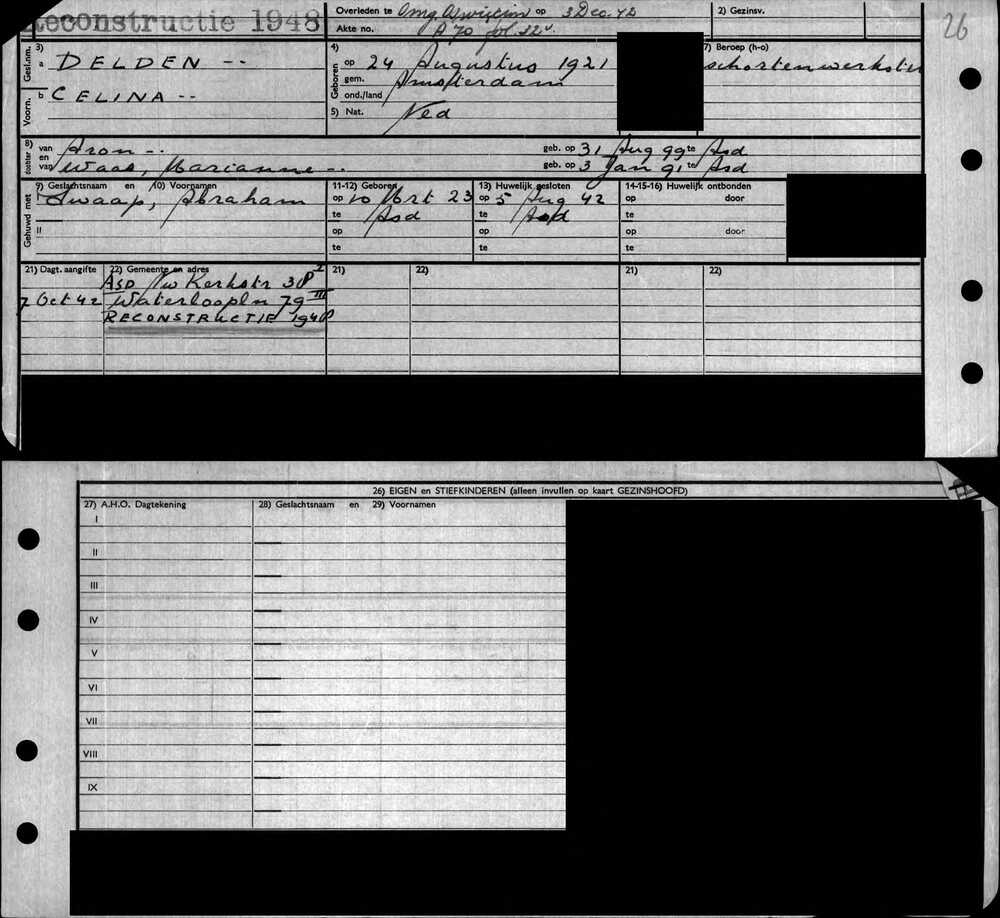 Reconstructie 1948
Overleden te Omg Oswiecim op 3 Dec. 42
2) Gezinsv.
26
Akte no. A 70 fol. 12v.
Gesl.nm. 3) a DELDEN --
Voorn. b CELINA --
4) Geboren op 24 Augustus 1921
gem. Amsterdam
ond./land
5) Nat. Ned
7) Beroep (h-o)
schortenwerkster
8) dochter van Aron -- geb. op 31 Aug 99 te Asd
en van Waas, Marianne -- geb. op 3 Jan 91 te Asd
Gehuwd met 9) Geslachtsnaam en 10) Voornamen
11-12) Geboren
13) Huwelijk gesloten
14-15-16) Huwelijk ontbonden
I Swaap, Abraham
op 10 Mrt 23 op 5 Aug 42 op door
te Asd te Asd te
II op op op door
te te te
21) Dagt. aangifte 22) Gemeente en adres 21) 22) 21) 22)
ASD Nw Kerkstr 38 I
7 Oct 42 Waterloopln 79 III
RECONSTRUCTIE 1948
26) EIGEN en STIEFKINDEREN (alleen invullen op kaart GEZINSHOOFD)
27) A.H.O. Dagtekening 28) Geslachtsnaam en 29) Voornamen
I
II
III
IV
V
VI
VII
VIII
IX